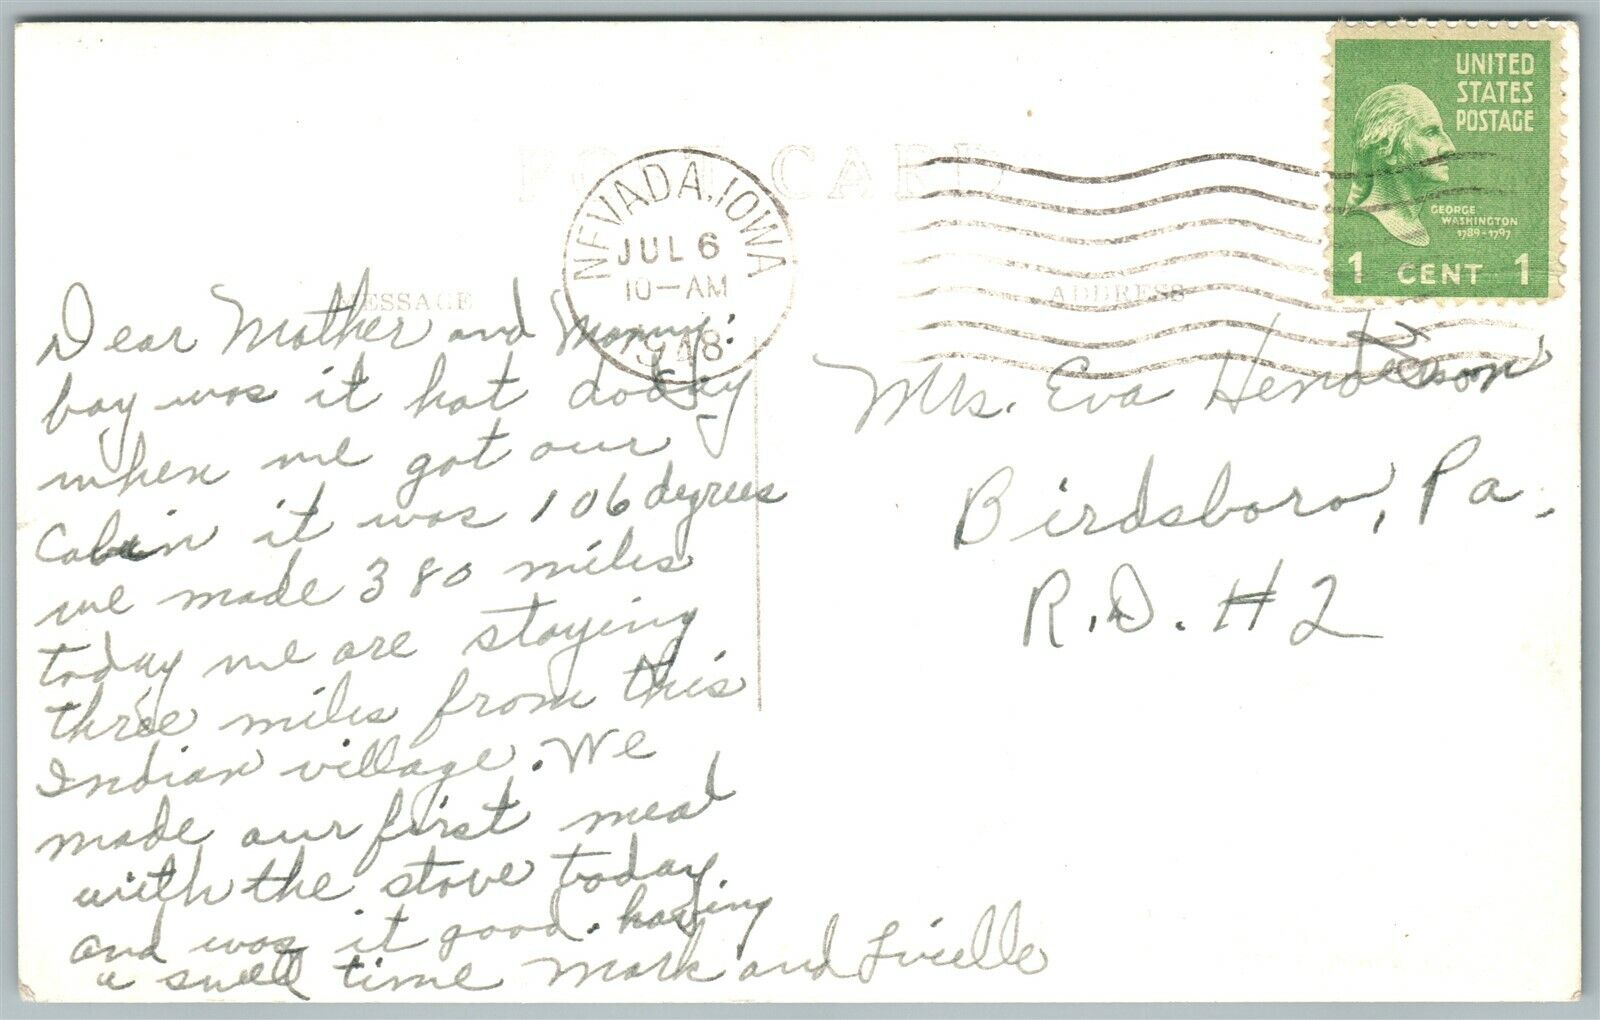 UNITED
STATES
POSTAGE
GEORGE
WASHINGTON
1789-1797
1 CENT 1
POST CARD
NEVADA, IOWA
JUL 6
10-AM
1948
MESSAGE
ADDRESS
Dear Mother and
boy was it hot today
when we got our
Cabin it was 106 degrees
we made 380 miles
today we are staying
three miles from this
Indian village. We
made our first meal
with the stove today
and was it good. having
a swell time Mark and Lucille
Mrs. Eva Henderson
Birdsboro, Pa.
R.D. #2